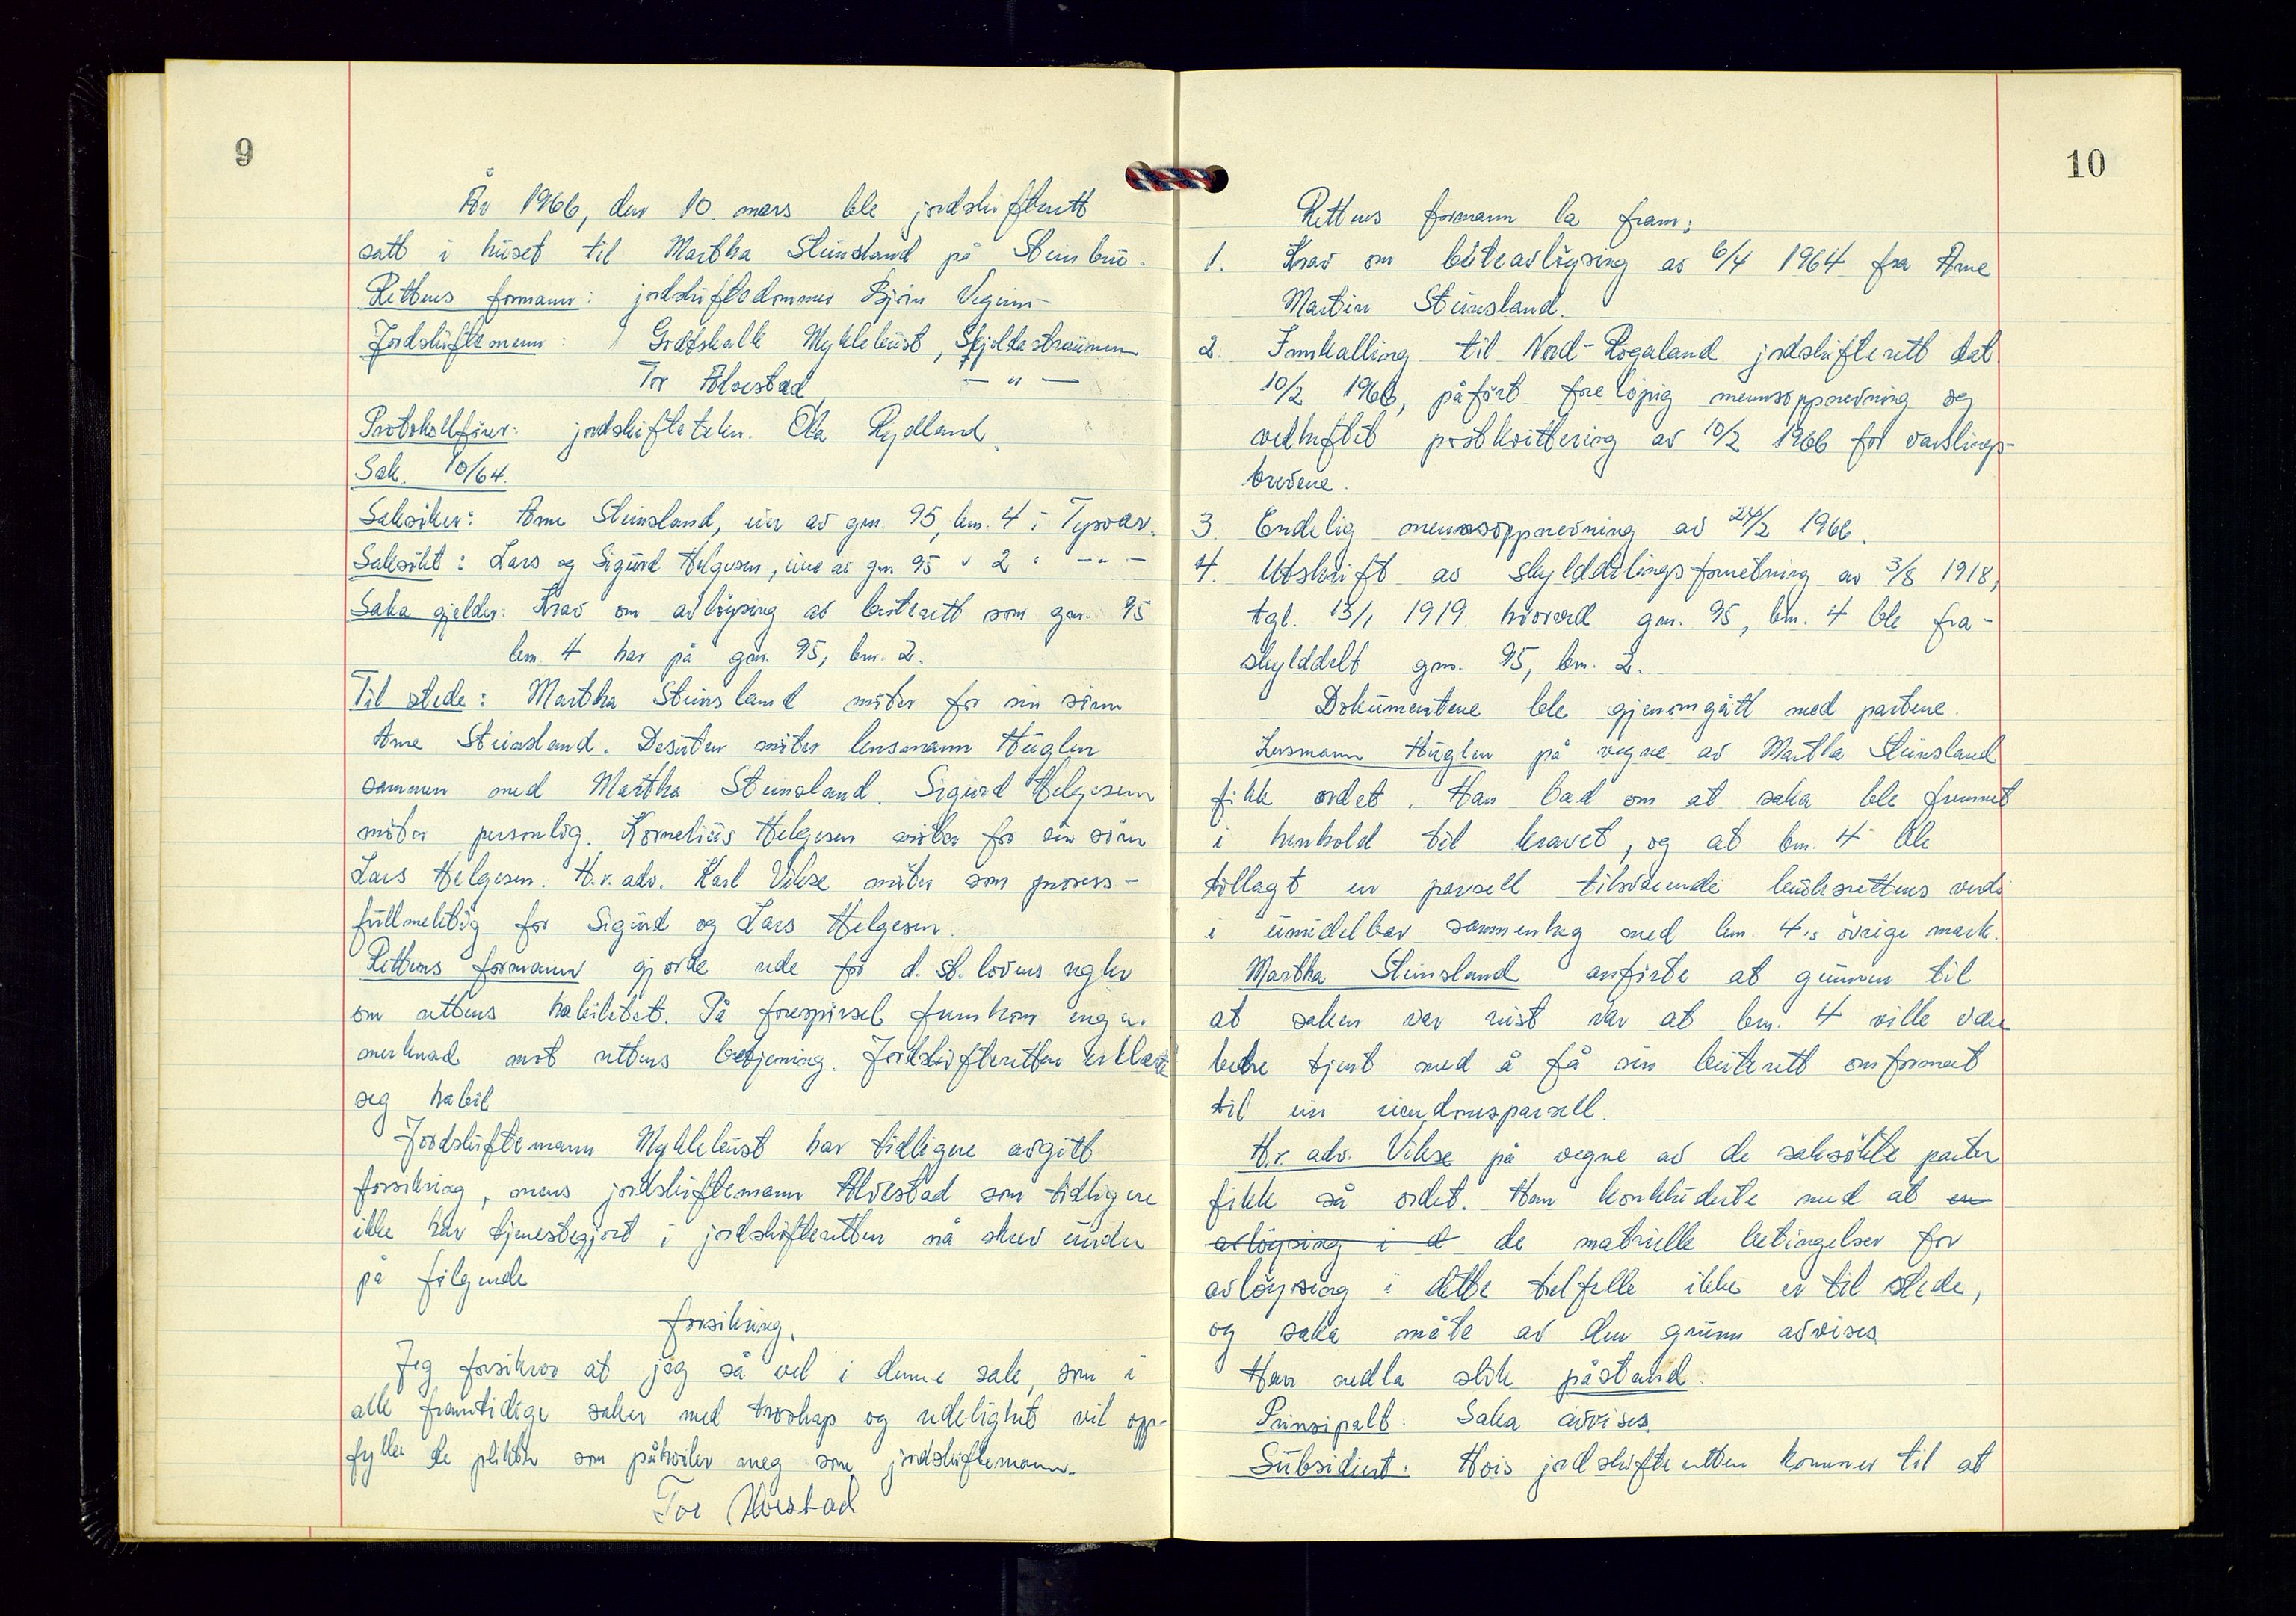 9
År 1966, den 10. mars ble jordskifterett
satt i huset til Martha Steinsland på Steinbru.
Rettens formann: jordskiftedommer Bjørn
Jordskiftemenn: Godtskalk Myklebust, Skjoldastraumen
Tor Alvestad — " —
Protokollfører: jordskiftetekn. Ola Rydland.
Sak. 10/64.
Saksøker: Arne Steinsland, eier av gnr. 95, bnr. 4 i Tysvær.
Saksøkt: Lars og Sigurd Helgesen, eiere av gnr. 95 " 2 " — " —
Saka gjelder: Krav om avløysing av beiterett som gnr. 95
bnr. 4 har på gnr. 95, bnr. 2.
Til stede: Martha Steinsland møter for sin sønn
Arne Steinsland. Desuten møter lensmann Hüglen
sammen med Martha Steinsland. Sigurd Helgesen
møter personlig. Kornelius Helgesen møter for sin sønn
Lars Helgesen. H.r.adv. Karl Vikse møter som prosess-
fullmektig for Sigurd og Lars Helgesen.
Rettens formann gjorde rede for d. st. lovens regler
om rettens habilitet. På forespørsel framkom ingen
merknad mot rettens betjening. Jordskifteretten erklærte
seg habil
Jordskiftemann Myklebust har tidligere avgitt
forsikring, mens jordskiftemann Alvestad som tidligere
ikke har tjenestegjort i jordskifteretten nå skrev under
på følgende
forsikring.
Jeg forsikrer at jeg så vel i denne sak, som i
alle framtidige saker med troskap og redelighet vil opp-
fylle de plikter som påhviler meg som jordskiftemann.
Tor Alvestad
10
Rettens formann la fram:
1. Krav om beiteavløysing av 6/4 1964 fra Arne
Martin Steinsland.
2. Innkalling til Nord-Rogaland jordskifterett dat
10/2 1966, påført foreløpig mennsoppnevning og
vedheftet postkvittering av 10/2 1966 for varslings-
brevene.
3. Endelig mennsoppnevning av 24/2 1966.
4. Utskrift av skylddelingsforretning av 3/8 1918,
tgl. 13/1 1919. hvorved gnr. 95, bnr. 4 ble fra-
skylddelt gnr. 95, bnr. 2.
Dokumentene ble gjennomgått med partene.
Lensmann Hüglen på vegne av Martha Steinsland
fikk ordet. Han bad om at saka ble fremmet
i henhold til kravet, og at bnr. 4 ble
tillagt en parsell tilsvarende bruksrettens verdi
i umidelbar sammenheg med bnr. 4's øvrige mark.
Martha Steinsland anførte at grunnen til
at saken var reist var at bnr. 4 ville være
bedre tjent med å få sin beiterett omformet
til ein eiendomsparsell.
H.r. adv. Vikse på vegne av de saksøkte parter
fikk så ordet. Han konkluderte med at en
avløysing i d de matrielle betingelser for
avløysing i dette tilfelle ikke er til stede,
og saka måtte av den grunn avvises
Han nedla slik påstand:
Prinsipalt: Saka avvises.
Subsidiert: Hvis jordskifteretten kommer til at